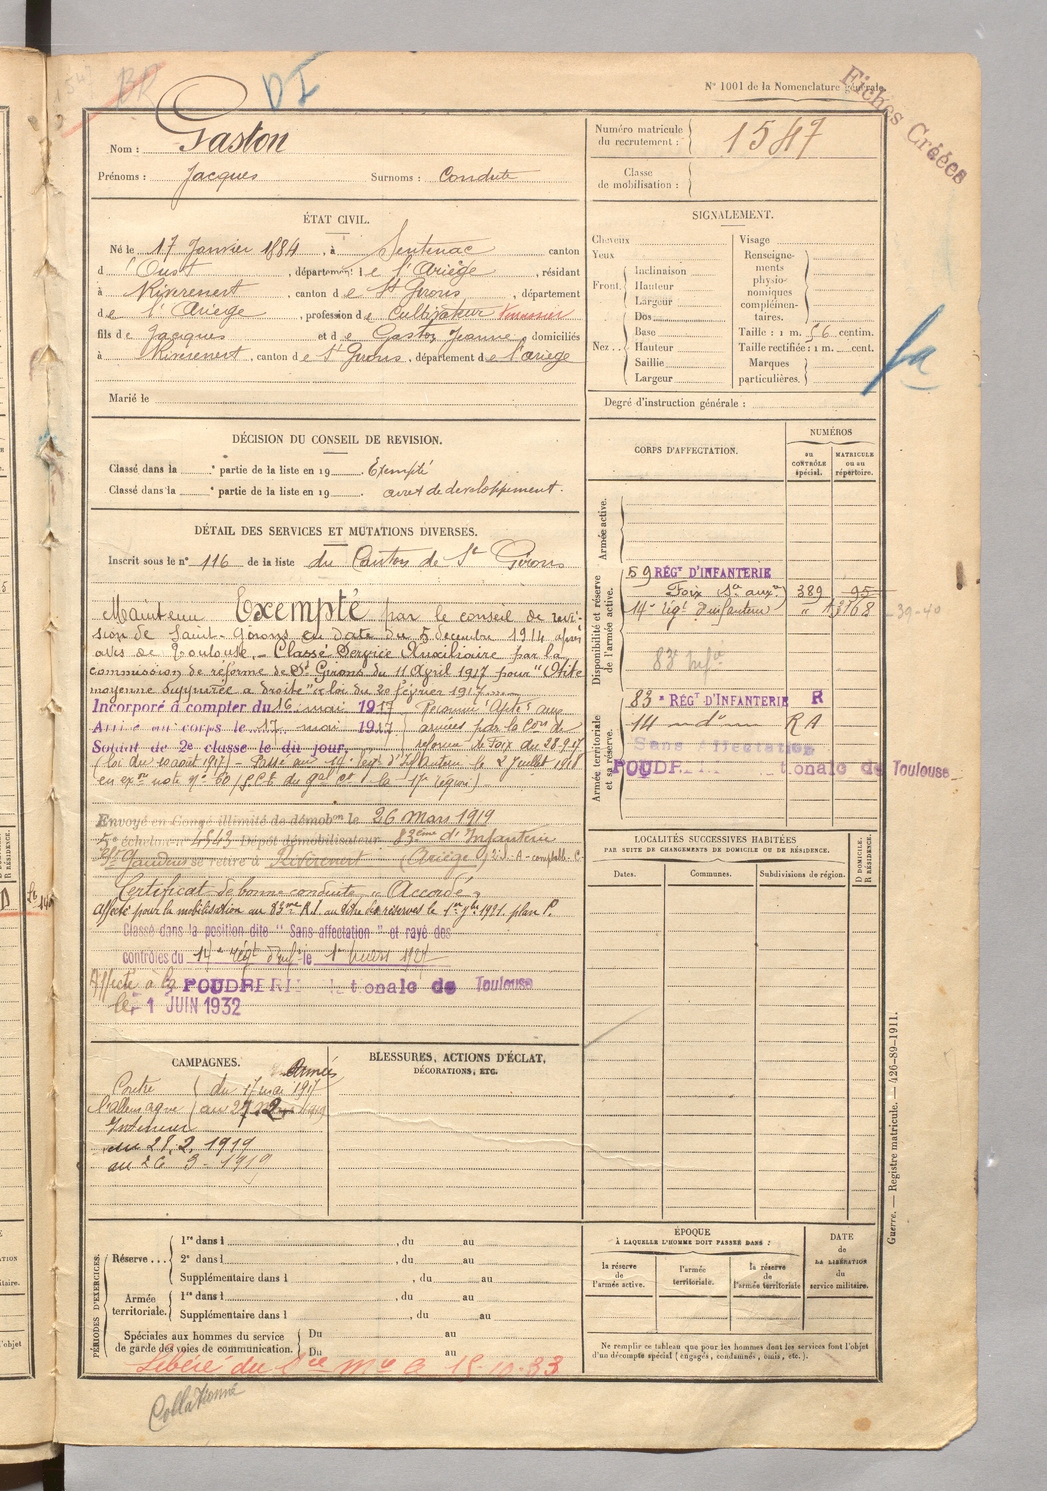 BR
DI
N° 1001 de la Nomenclature générale
Fiches Créées
Nom : Gaston
Prénoms : Jacques Surnoms : Condute
Numéro matricule du recrutement : 1547
Classe de mobilisation :
ÉTAT CIVIL.
Né le 17 Janvier 1884, à Sentenac canton
d'Oust, département de l'Ariège, résidant
à Rivèrenert, canton de St Girons, département
de l'Ariège, profession de Cultivateur
fils de Jacques et de Gaston Jeanne, domiciliés
à Rivèrenert, canton de St Girons, département de l'Ariège
Marié le
SIGNALEMENT.
Cheveux
Yeux
Front. Inclinaison
Hauteur
Largeur
Nez.. Dos
Base
Hauteur
Saillie
Largeur
Visage
Renseignements physionomiques complémentaires.
Taille : 1 m. 56 centim.
Taille rectifiée : 1 m. cent.
Marques particulières.
Degré d'instruction générale :
DÉCISION DU CONSEIL DE REVISION.
Classé dans la e partie de la liste en 19 Exempté
Classé dans la e partie de la liste en 19 arret de developpement.
DÉTAIL DES SERVICES ET MUTATIONS DIVERSES.
Inscrit sous le n° 116 de la liste du Canton de St Girons
Maintenu Exempté par le conseil de revi-
sion de Saint-Girons en date du 5 decembre 1914 après
avis de Toulouse. Classé Service Auxiliaire par la
commission de réforme de St Girons du 11 Avril 1917 pour "Otite
moyenne suppurée à droite" loi du 20 février 1917
Incorporé à compter du 16 mai 1917 Reconnu "Apte" aux
Arrivé au corps le 17 mai 1917 armées par la Con de
Soldat de 2e classe le dit jour, réforme de Foix du 28-9-17
(loi du 10 août 1917) Passé au 14e Regt d'Infanterie le 2 Juillet 1918
Envoyé en Congé illimité de démobon le 26 Mars 1919
échelon n° 4543 Dépôt démobilisateur 83ème d'Infanterie
se retire à Rivèrenert (Ariège)
Certificat de bonne conduite "Accordé"
Affecté pour la mobilisation au 83me R.I. plan P.
Classé dans la position dite "Sans affectation" et rayé des
contrôles du 14e régt d'inf le
Affecté à la POUDRERIE Nationale de Toulouse
le 1 JUIN 1932
CORPS D'AFFECTATION.
NUMÉROS
au CONTRÔLE spécial.
MATRICULE ou au répertoire.
Armée active.
Disponibilité et réserve de l'armée active.
59 RÉGt D'INFANTERIE
Foix 389 95
14e régt d'infanterie
39-40
83e infie
Armée territoriale et sa réserve.
83e RÉGt D'INFANTERIE R
14 — do — RA
Sans Affectation
POUDRERIE Nationale de Toulouse
LOCALITÉS SUCCESSIVES HABITÉES
PAR SUITE DE CHANGEMENTS DE DOMICILE OU DE RÉSIDENCE.
Dates.
Communes.
Subdivisions de région.
D DOMICILE.
R RÉSIDENCE.
CAMPAGNES.
Armées
Contre l'Allemagne du 17 mai 1917
Intérieur
du 28.2.1919
au 26-3-1919
BLESSURES, ACTIONS D'ÉCLAT,
DÉCORATIONS, ETC.
PÉRIODES D'EXERCICES.
Réserve... 1re dans l , du au
2e dans l , du au
Supplémentaire dans l , du au
Armée territoriale. 1re dans l , du au
Supplémentaire dans l , du au
Spéciales aux hommes du service de garde des voies de communication. Du au
Du au
Libéré du Sce Mre le 15-10-33
Collationné
ÉPOQUE
À LAQUELLE L'HOMME DOIT PASSER DANS :
la réserve de l'armée active.
l'armée territoriale.
la réserve de l'armée territoriale
DATE de LA LIBÉRATION du service militaire.
Ne remplir ce tableau que pour les hommes dont les services font l'objet
d'un décompte spécial (engagés, condamnés, omis, etc.).
Guerre. — Registre matricule. — 426-89-1911.